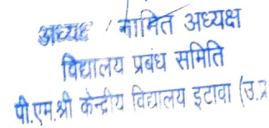 अध्यक्ष / नामित अध्यक्ष
विद्यालय प्रबंध समिति
पी.एम.श्री केन्द्रीय विद्यालय इटावा (उ.प्र